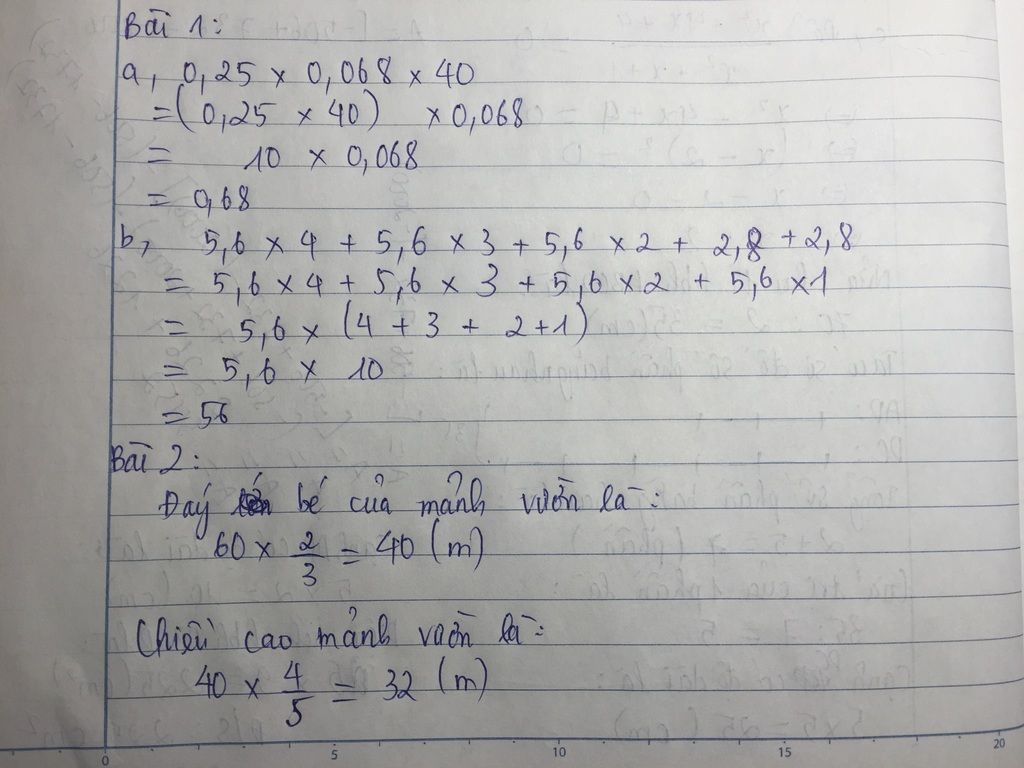 Bài 1:
a, 0,25 × 0,068 × 40
= (0,25 × 40) × 0,068
= 10 × 0,068
= 0,68
b, 5,6 × 4 + 5,6 × 3 + 5,6 × 2 + 2,8 + 2,8
= 5,6 × 4 + 5,6 × 3 + 5,6 × 2 + 5,6 × 1
= 5,6 × (4 + 3 + 2 + 1)
= 5,6 × 10
= 56
Bài 2:
Đáy bé của mảnh vườn là:
60 × 2/3 = 40 (m)
Chiều cao mảnh vườn là:
40 × 4/5 = 32 (m)
0 5 10 15 20